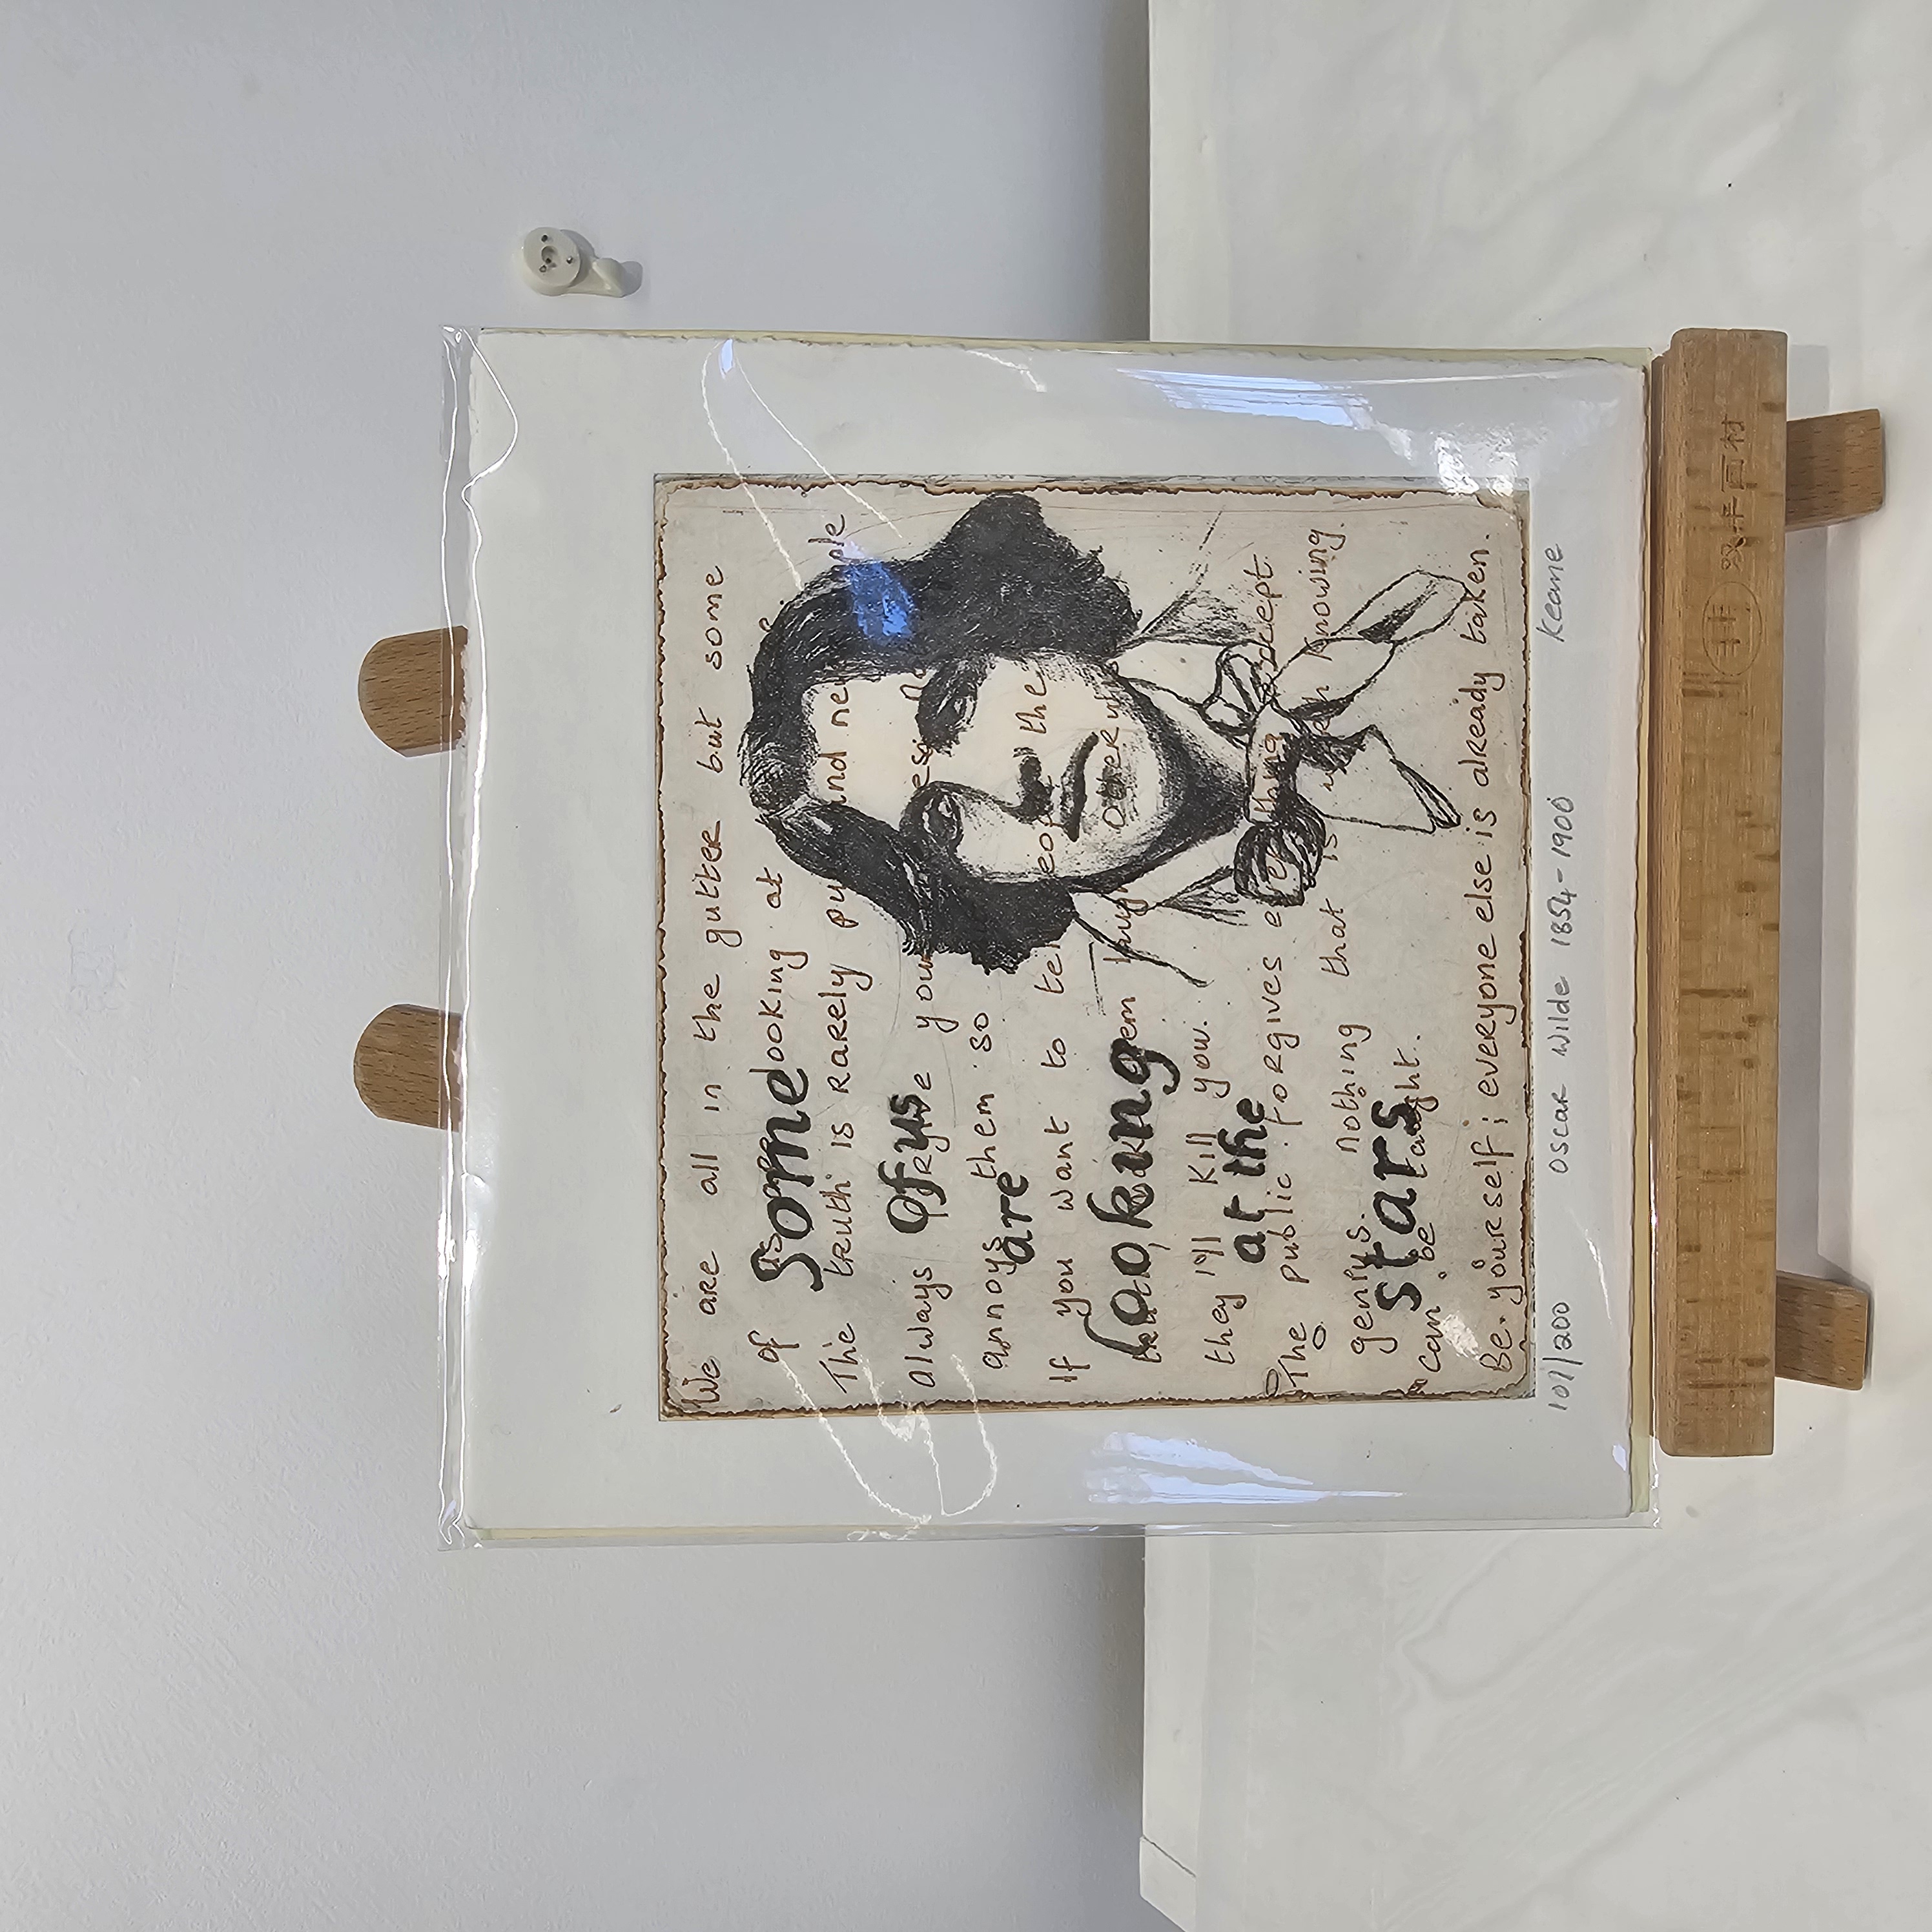 We are all in the gutter but some
of us looking at
Some
The truth is rarely pu and ne ple
Always forgive you es
of us
annoys them so
are
If you want to tel eof the
Looking
em laugh otherwi
they'll kill you.
at the
The public forgives e thing except
genius. nothing that is worth knowing.
stars
can be taught.
Be yourself; everyone else is already taken.
101/200 Oscar Wilde 1854-1900 Keane